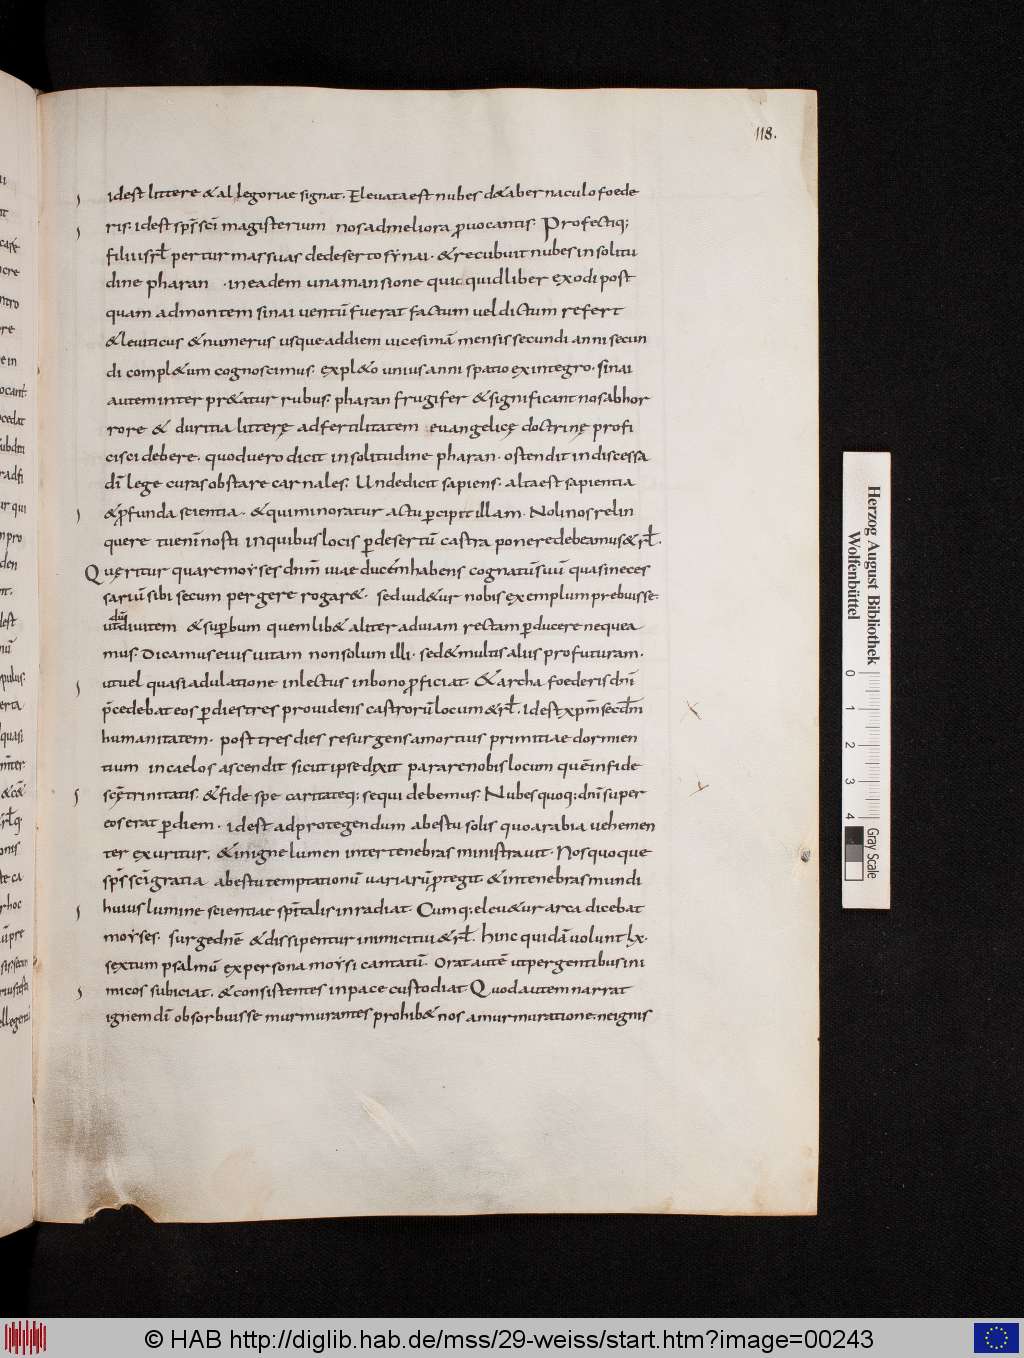 118.
idest littere & allegoriae signat. Eleuata est nubes d& abernaculo foede
ris. idest sp̅s sc̅i magisterium nos ad meliora ꝓuocantis. Profectiq;
filii isrł per turmas suas de deserto synai. & recubuit nubes in solitu
dine pharan. in eadem una mansione quicquid liber exodi post
quam ad montem sinai uentū fuerat factum uel dictum refert
& leuiticus & numerus usque ad diem uicesimā mensis secundi anni secun
di compl&um cognoscimus. expl&o unius anni spatio ex integro. sinai
autem interpr&atur rubus. pharan frugifer & significant nos abhor
rore & duritia litterę ad fertilitatem euangelicę doctrinę profi
cisci debere. quod uero dicit in solitudine pharan. ostendit in discessa
di̅ lege curas obstare carnales. Unde dicit sapiens. alta est sapientia
& ꝓfunda scientia. & qui minoratur actu ꝑcipit illam. Noli nos relin
quere tu eni̅ nosti in quibus locis ꝑ desertū castra ponere debeamus & rł.
Quęritur quare moyses dnm̅ uiae ducem̅ habens cognatū suū quasi neces
sariū sibi secum pergere rogar&. sed uid&ur nobis exemplum prebuisse.
ut diuitem & suꝑbum quemlib& aliter ad uiam rectam ꝑducere nequea
mus. Dicamus eius uitam non solum illi. sed & multis aliis profuturam.
ut uel quasi adulatione inlectus in bono ꝓficiat. & archa foederis dni̅
p̄cedebat eos ꝑ dies tres prouidens castrorū locum & rł. idest xpm̅ secd̅m
humanitatem. post tres dies resurgens a mortuis primitiae dormien
tium in caelos ascendit sicut ipse dixit parare nobis locum quē in fide
scę̅ trinitatis. & fide spe caritateq; sequi debemus. Nubes quoq; dni̅ super
eos erat ꝑ diem. idest ad protegendum ab estu solis quo arabia uehemen
ter exuritur. & in igne lumen inter tenebras ministrauit. Nos quoque
sp̅s sc̅i gratia ab estu temptationū uariarū ꝓtegit & in tenebras mundi
huius lumine scientiae spi̅talis inradiat. Cumq; eleu&ur arca dicebat
moyses. surge dnē & dissipentur inimici tui & rł. hinc quidā uolunt lxͥ.
sextum psalmū ex persona moysi cantatū. Orat autē ut pergentibus ini
micos subiciat. & consistentes in pace custodiat. Quod autem narrat
ignem di̅ obsorbuisse murmurantes prohib& nos a murmuratione. ne ignis
Herzog August Bibliothek
Wolfenbüttel
0 1 2 3 4
Gray Scale
© HAB http://diglib.hab.de/mss/29-weiss/start.htm?image=00243